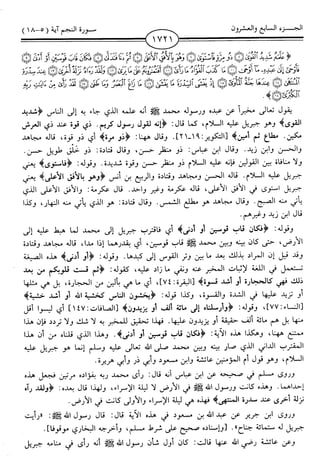 الجـــزء السابع والعشرون
١٧٢١
سـورة النجم آية (٥-١٨)
يقول تعالى مخبراً عن عبده ورسوله محمد ﷺ أنه علمه الذي جاء به إلى الناس ﴿شديد
القوى﴾ وهو جبريل عليه السلام، كما قال: ﴿إنه لقول رسول كريم. ذي قوة عند ذي العرش
مكين. مطاع ثم أمين﴾ [التكوير: ١٩-٢١]. وقال ههنا: ﴿ذو مرة﴾ أي ذو قوة، قاله مجاهد
والحسن وابن زيد. وقال ابن عباس: ذو منظر حسن، وقال قتادة: ذو خَلْق طويل حسن.
ولا منافاة بين القولين فإنه عليه السلام ذو منظر حسن وقوة شديدة. وقوله: ﴿فاستوى﴾ يعني
جبريل عليه السلام. قاله الحسن ومجاهد وقتادة والربيع بن أنس ﴿وهو بالأفق الأعلى﴾ يعني
جبريل استوى في الأفق الأعلى، قاله عكرمة وغير واحد. قال عكرمة: والأفق الأعلى الذي
يأتي منه الصبح. وقال مجاهد هو مطلع الشمس. وقال قتادة: هو الذي يأتي منه النهار، وكذا
قال ابن زيد وغيرهم.
وقوله: ﴿فكان قاب قوسين أو أدنى﴾ أي فاقترب جبريل إلى محمد لما هبط عليه إلى
الأرض، حتى كان بينه وبين محمد ﷺ قاب قوسين، أي بقدرهما إذا مدا، قاله مجاهد وقتادة
وقد قيل إن المراد بذلك بعد ما بين وتر القوس إلى كبدها. وقوله: ﴿أو أدنى﴾ هذه الصيغة
تستعمل في اللغة لإثبات المخبر عنه ونفي ما زاد عليه، كقوله: ﴿ثم قست قلوبكم من بعد
ذلك فهي كالحجارة أو أشد قسوة﴾ [البقرة: ٧٤]، أي ما هي بألين من الحجارة، بل هي مثلها
أو تزيد عليها في الشدة والقسوة، وكذا قوله: ﴿يخشون الناس كخشية الله أو أشد خشية﴾
[النساء: ٧٧]، وقوله: ﴿وأرسلناه إلى مائة ألف أو يزيدون﴾ [الصافات: ١٤٧] أي ليسوا أقل
منها بل هم مائة ألف حقيقة أو يزيدون عليها. فهذا تحقيق للمخبر به لا شك ولا تردد فإن هذا
ممتنع ههنا، وهكذا هذه الآية: ﴿فكان قاب قوسين أو أدنى﴾. وهذا الذي قلناه من أن هذا
المقترب الداني الذي صار بينه وبين محمد صلى الله تعالى عليه وسلم إنما هو جبريل عليه
السلام، وهو قول أم المؤمنين عائشة وابن مسعود وأبي ذر وأبي هريرة.
وروى مسلم في صحيحه عن ابن عباس أنه قال: رأى محمد ربه بفؤاده مرتين فجعل هذه
إحداهما. وهذه كانت ورسول الله ﷺ في الأرض لا ليلة الإسراء، ولهذا قال بعده: ﴿ولقد رآه
نزلة أخرى عند سدرة المنتهى﴾ فهذه هي ليلة الإسراء والأولى كانت في الأرض.
وروى ابن جرير عن عبد الله بن مسعود في هذه الآية قال: قال رسول الله ﷺ: «رأيت
جبريل له ستمائة جناح». [وإسناده صحيح على شرط مسلم، وأخرجه البخاري موقوفاً].
وعن عائشة رضي الله عنها قالت: كان أول شأن رسول الله ﷺ أنه رأى في منامه جبريل